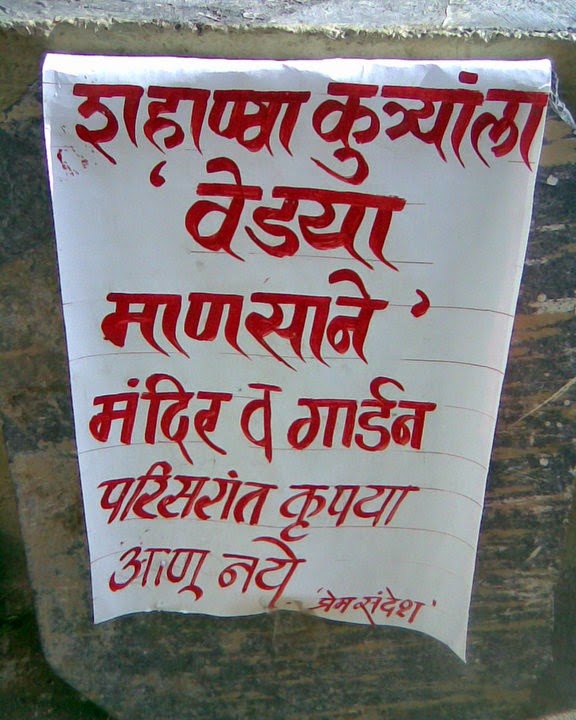 शहाण्या कुत्र्यांला
‘वेडया
माणसाने’
मंदिर व गार्डन
परिसरांत कृपया
आणू नये
'प्रेम संदेश'